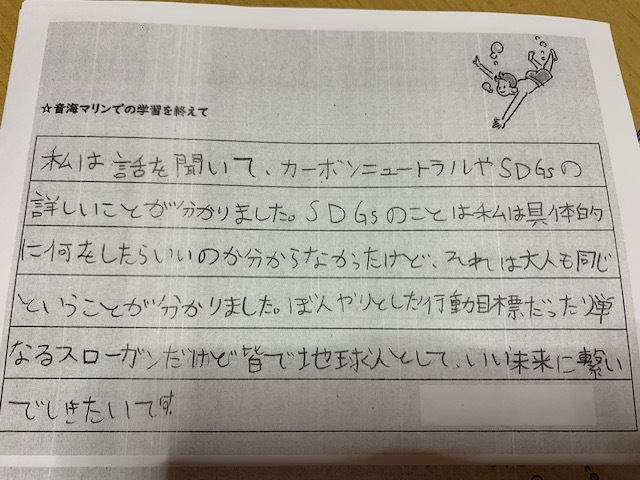 ☆音海マリンでの学習を終えて
私は話を聞いて、カーボンニュートラルやSDGsの
詳しいことが分かりました。SDGsのことは私は具体的
に何をしたらいいのか分からなかったけど、それは大人も同じ
ということが分かりました。ぼんやりとした行動目標だったり単
なるスローガンだけど皆で地球人として、いい未来に繋い
でいきたいです。